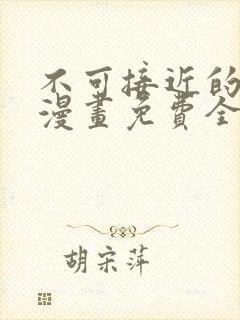 不可接近的
漫畫免費全
胡宋萍